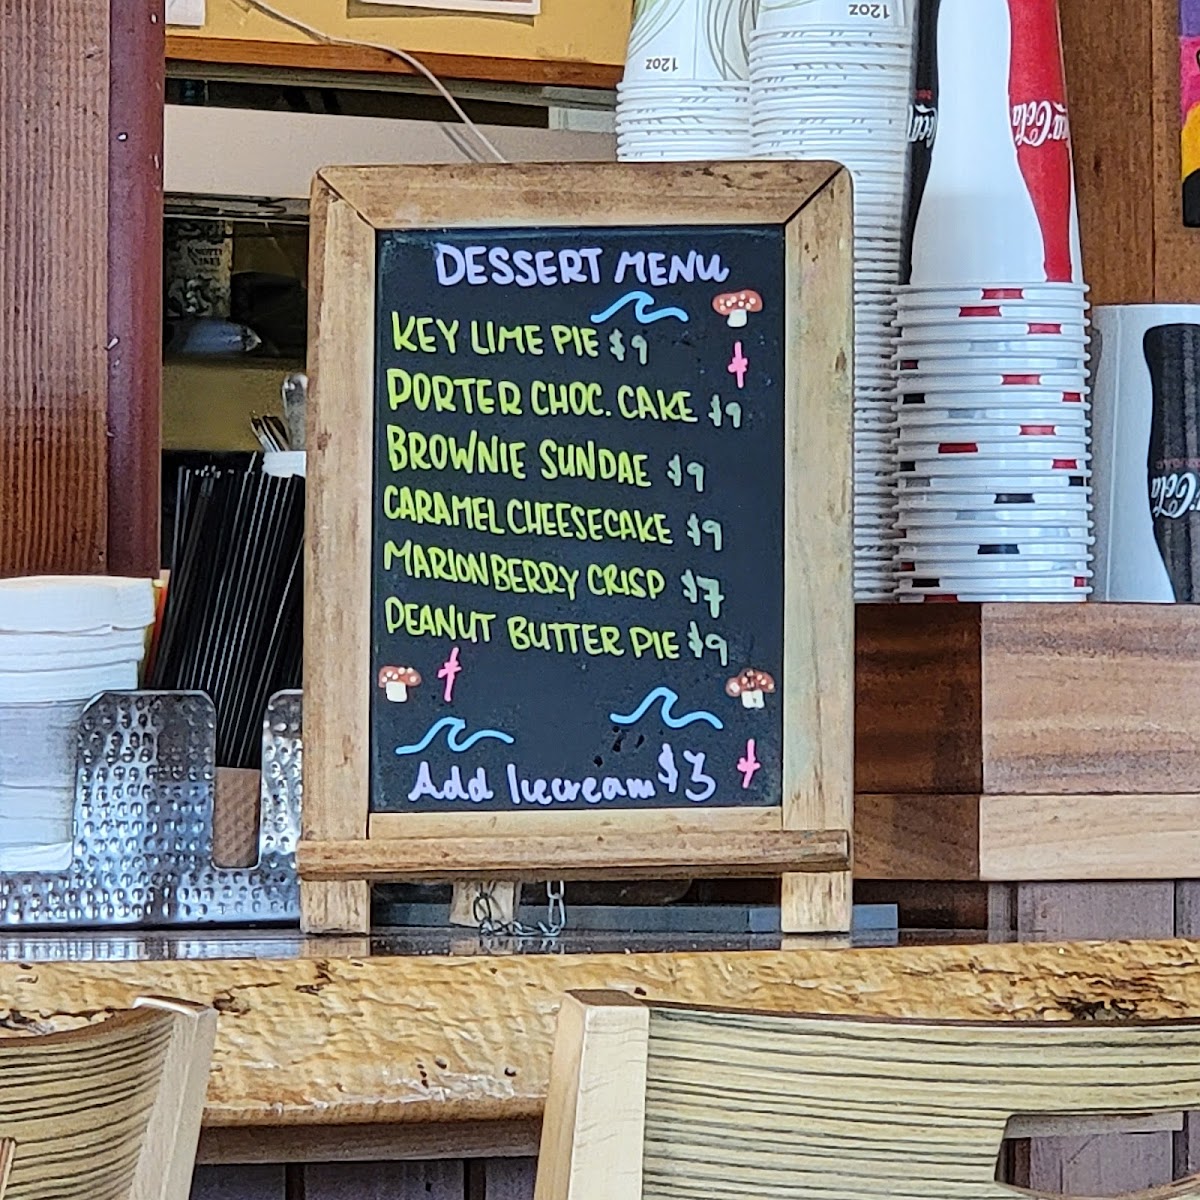 12oz
12oz
Coca-Cola
DESSERT MENU
KEY LIME PIE $9
PORTER CHOC. CAKE $9
BROWNIE SUNDAE $9
CARAMEL CHEESECAKE $9
MARIONBERRY CRISP $7
PEANUT BUTTER PIE $9
Add Icecream $3